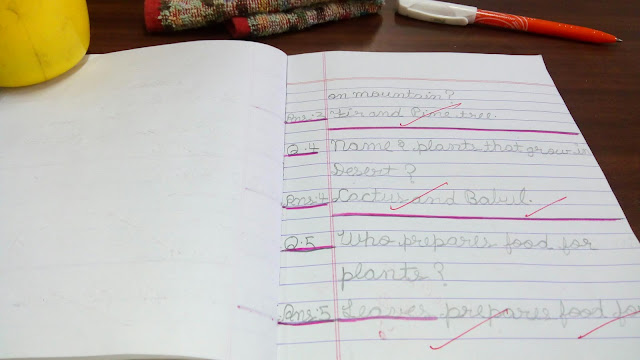 on mountain?
Ans.3 Fir and Pine tree.
Q.4 Name 2 plants that grow in
Desert?
Ans.4 Cactus and Babul.
Q.5 Who prepares food for
plants?
Ans.5 Leaves prepares food fo